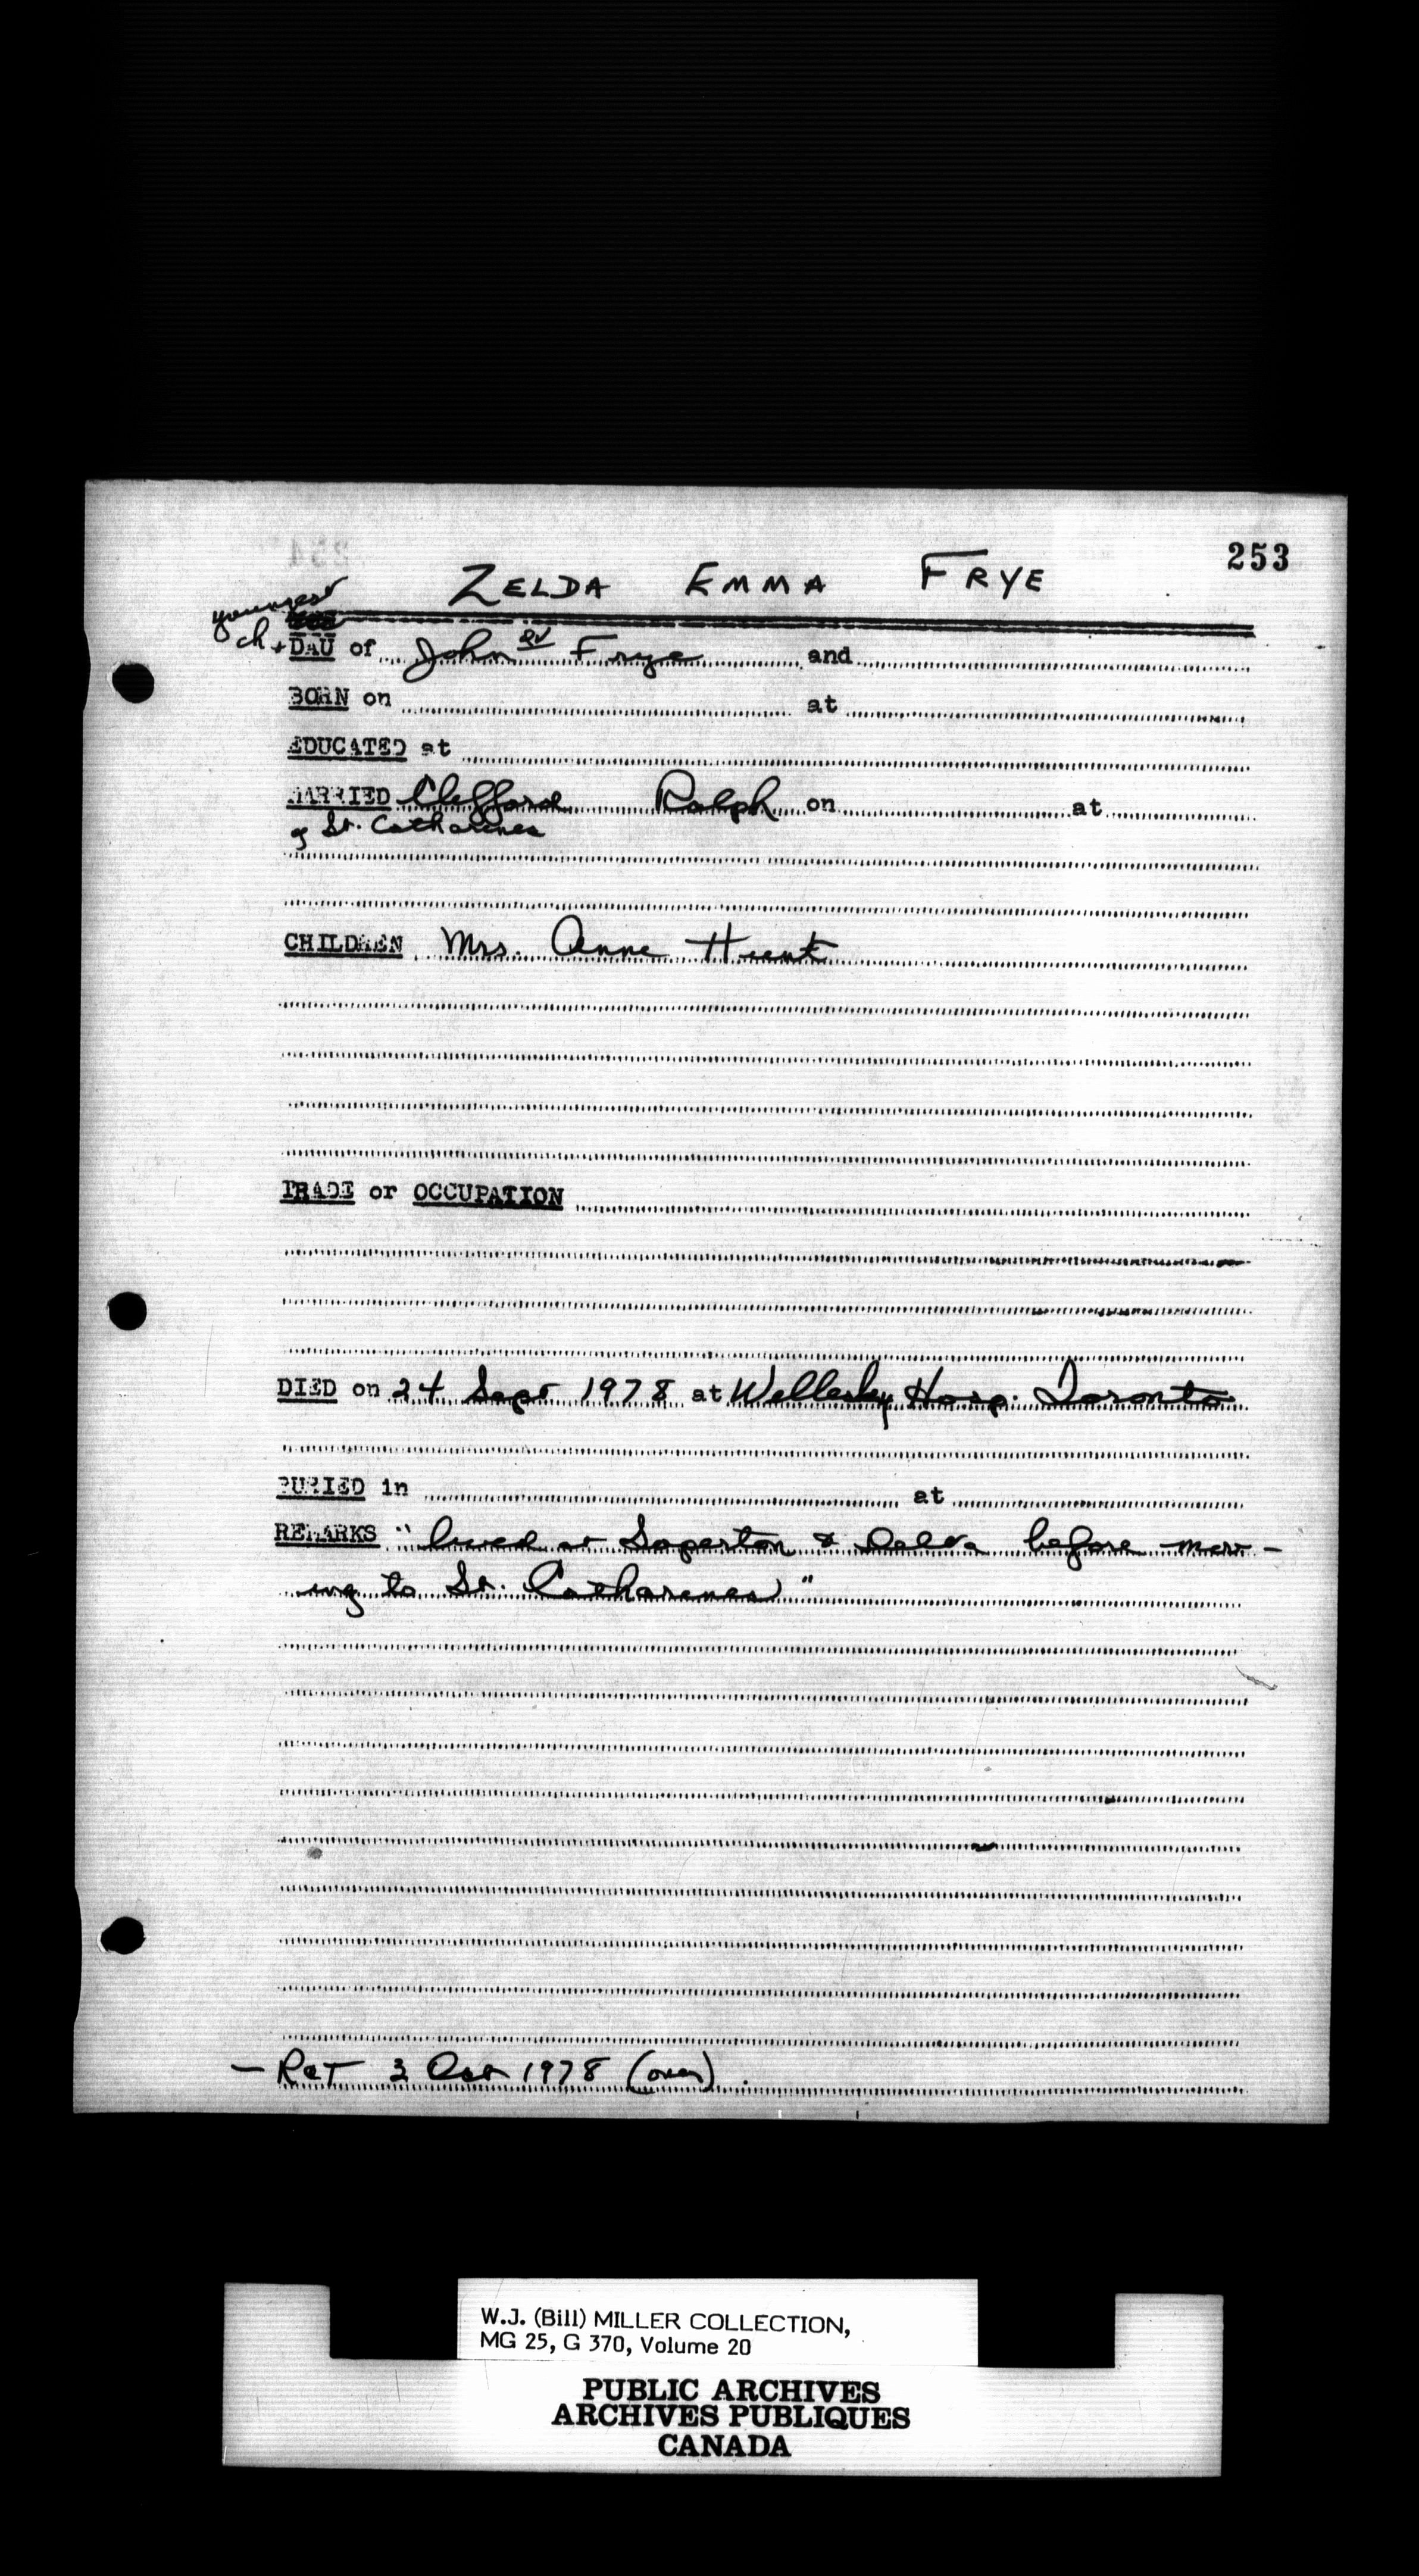 253
ZELDA EMMA FRYE
youngest
ch + DAU of John Frye and
BORN on at
EDUCATED at
MARRIED Clifford Ralph on at
of St. Catharines
CHILDREN Mrs. Anne Hunt
TRADE or OCCUPATION
DIED on 24 Sept 1978 at Wellesley Hosp. Toronto
BURIED in at
REMARKS "lived at Soperton & Delta before mov-
ing to St. Catharines"
- R&T 3 Oct 1978 (over)
W.J. (Bill) MILLER COLLECTION,
MG 25, G 370, Volume 20
PUBLIC ARCHIVES
ARCHIVES PUBLIQUES
CANADA